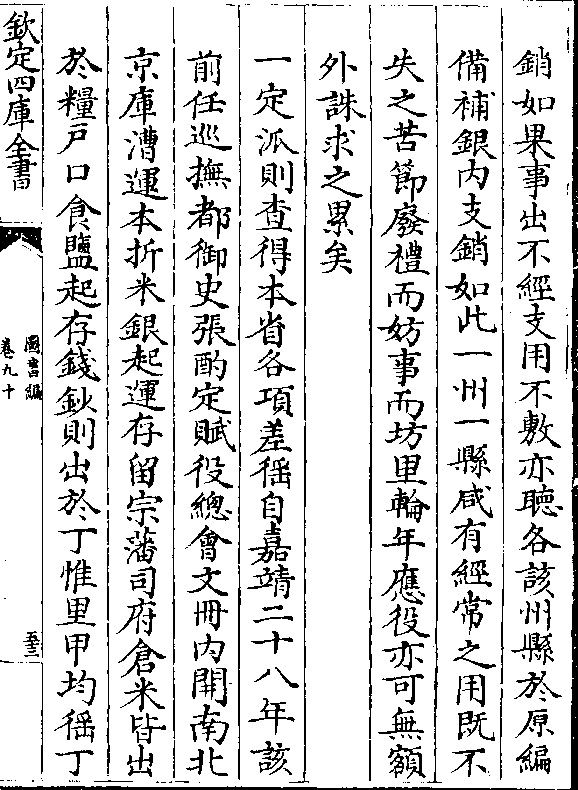 銷如果事出不經支用不敷亦聽各該州縣於原編
備補銀内支銷如此一州一縣咸有經常之用既不
失之苦節廢禮而妨事而坊里輪年應役亦可無額
外誅求之累矣
一定派則查得本省各項差徭自嘉靖二十八年該
前任巡撫都御史張酌定賦役總會文冊内開南北
京庫漕運本折米銀起運存留宗藩司府倉米皆出
於糧戶口食鹽起存錢鈔則出於丁惟里甲均徭丁
欽定四庫全書
圖書編
卷九十
五三